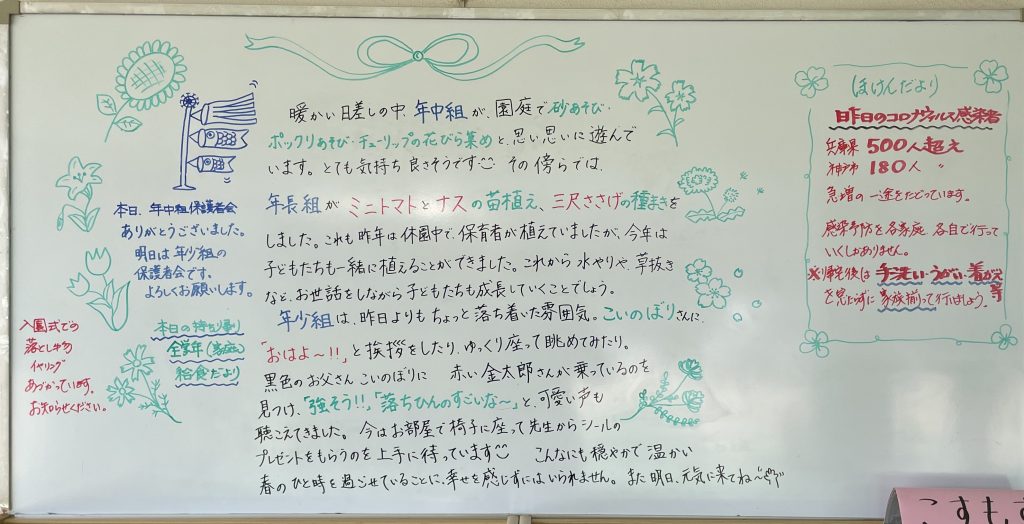 暖かい日差しの中、年中組が、園庭で砂あそび・
ポックリあそび・チューリップの花びら集めと、思い思いに遊んで
います。とても気持ち良さそうです その傍らでは、
年長組がミニトマトとナスの苗植え、三尺ささげの種まきを
しました。これも昨年は休園中で、保育者が植えていましたが、今年は
子どもたちも一緒に植えることができました。これから水やりや、草抜き
など、お世話をしながら子どもたちも成長していくことでしょう。
年少組は、昨日よりもちょっと落ち着いた雰囲気。こいのぼりさんに、
「おはよ〜!!」と挨拶をしたり、ゆっくり座って眺めてみたり。
黒色のお父さんこいのぼりに 赤い金太郎さんが乗っているのを
見つけ、「強そう!!」「落ちひんのすごいな〜」と、可愛い声も
聴こえてきました。今はお部屋で椅子に座って先生からシールの
プレゼントをもらうのを上手に待っています こんなにも穏やかで温かい
春のひと時を過ごせていることに、幸せを感じずにはいられません。また明日、元気に来てね〜
本日、年中組保護者会
ありがとうございました。
明日は年少組の
保護者会です。
よろしくお願いします。
本日の持ち帰り
全学年(家庭)
給食だより
入園式での
落とし物
イヤリング
あづかっています。
お知らせください。
ほけんだより
昨日のコロナウィルス感染者
兵庫県 500人超え
神戸市 180人 〃
急増の一途をたどっています。
感染予防を各家庭、各自で行って
いくしかありません。
帰宅後は手洗い・うがい・着がえ
等
家族揃って行いましょう。
こすも